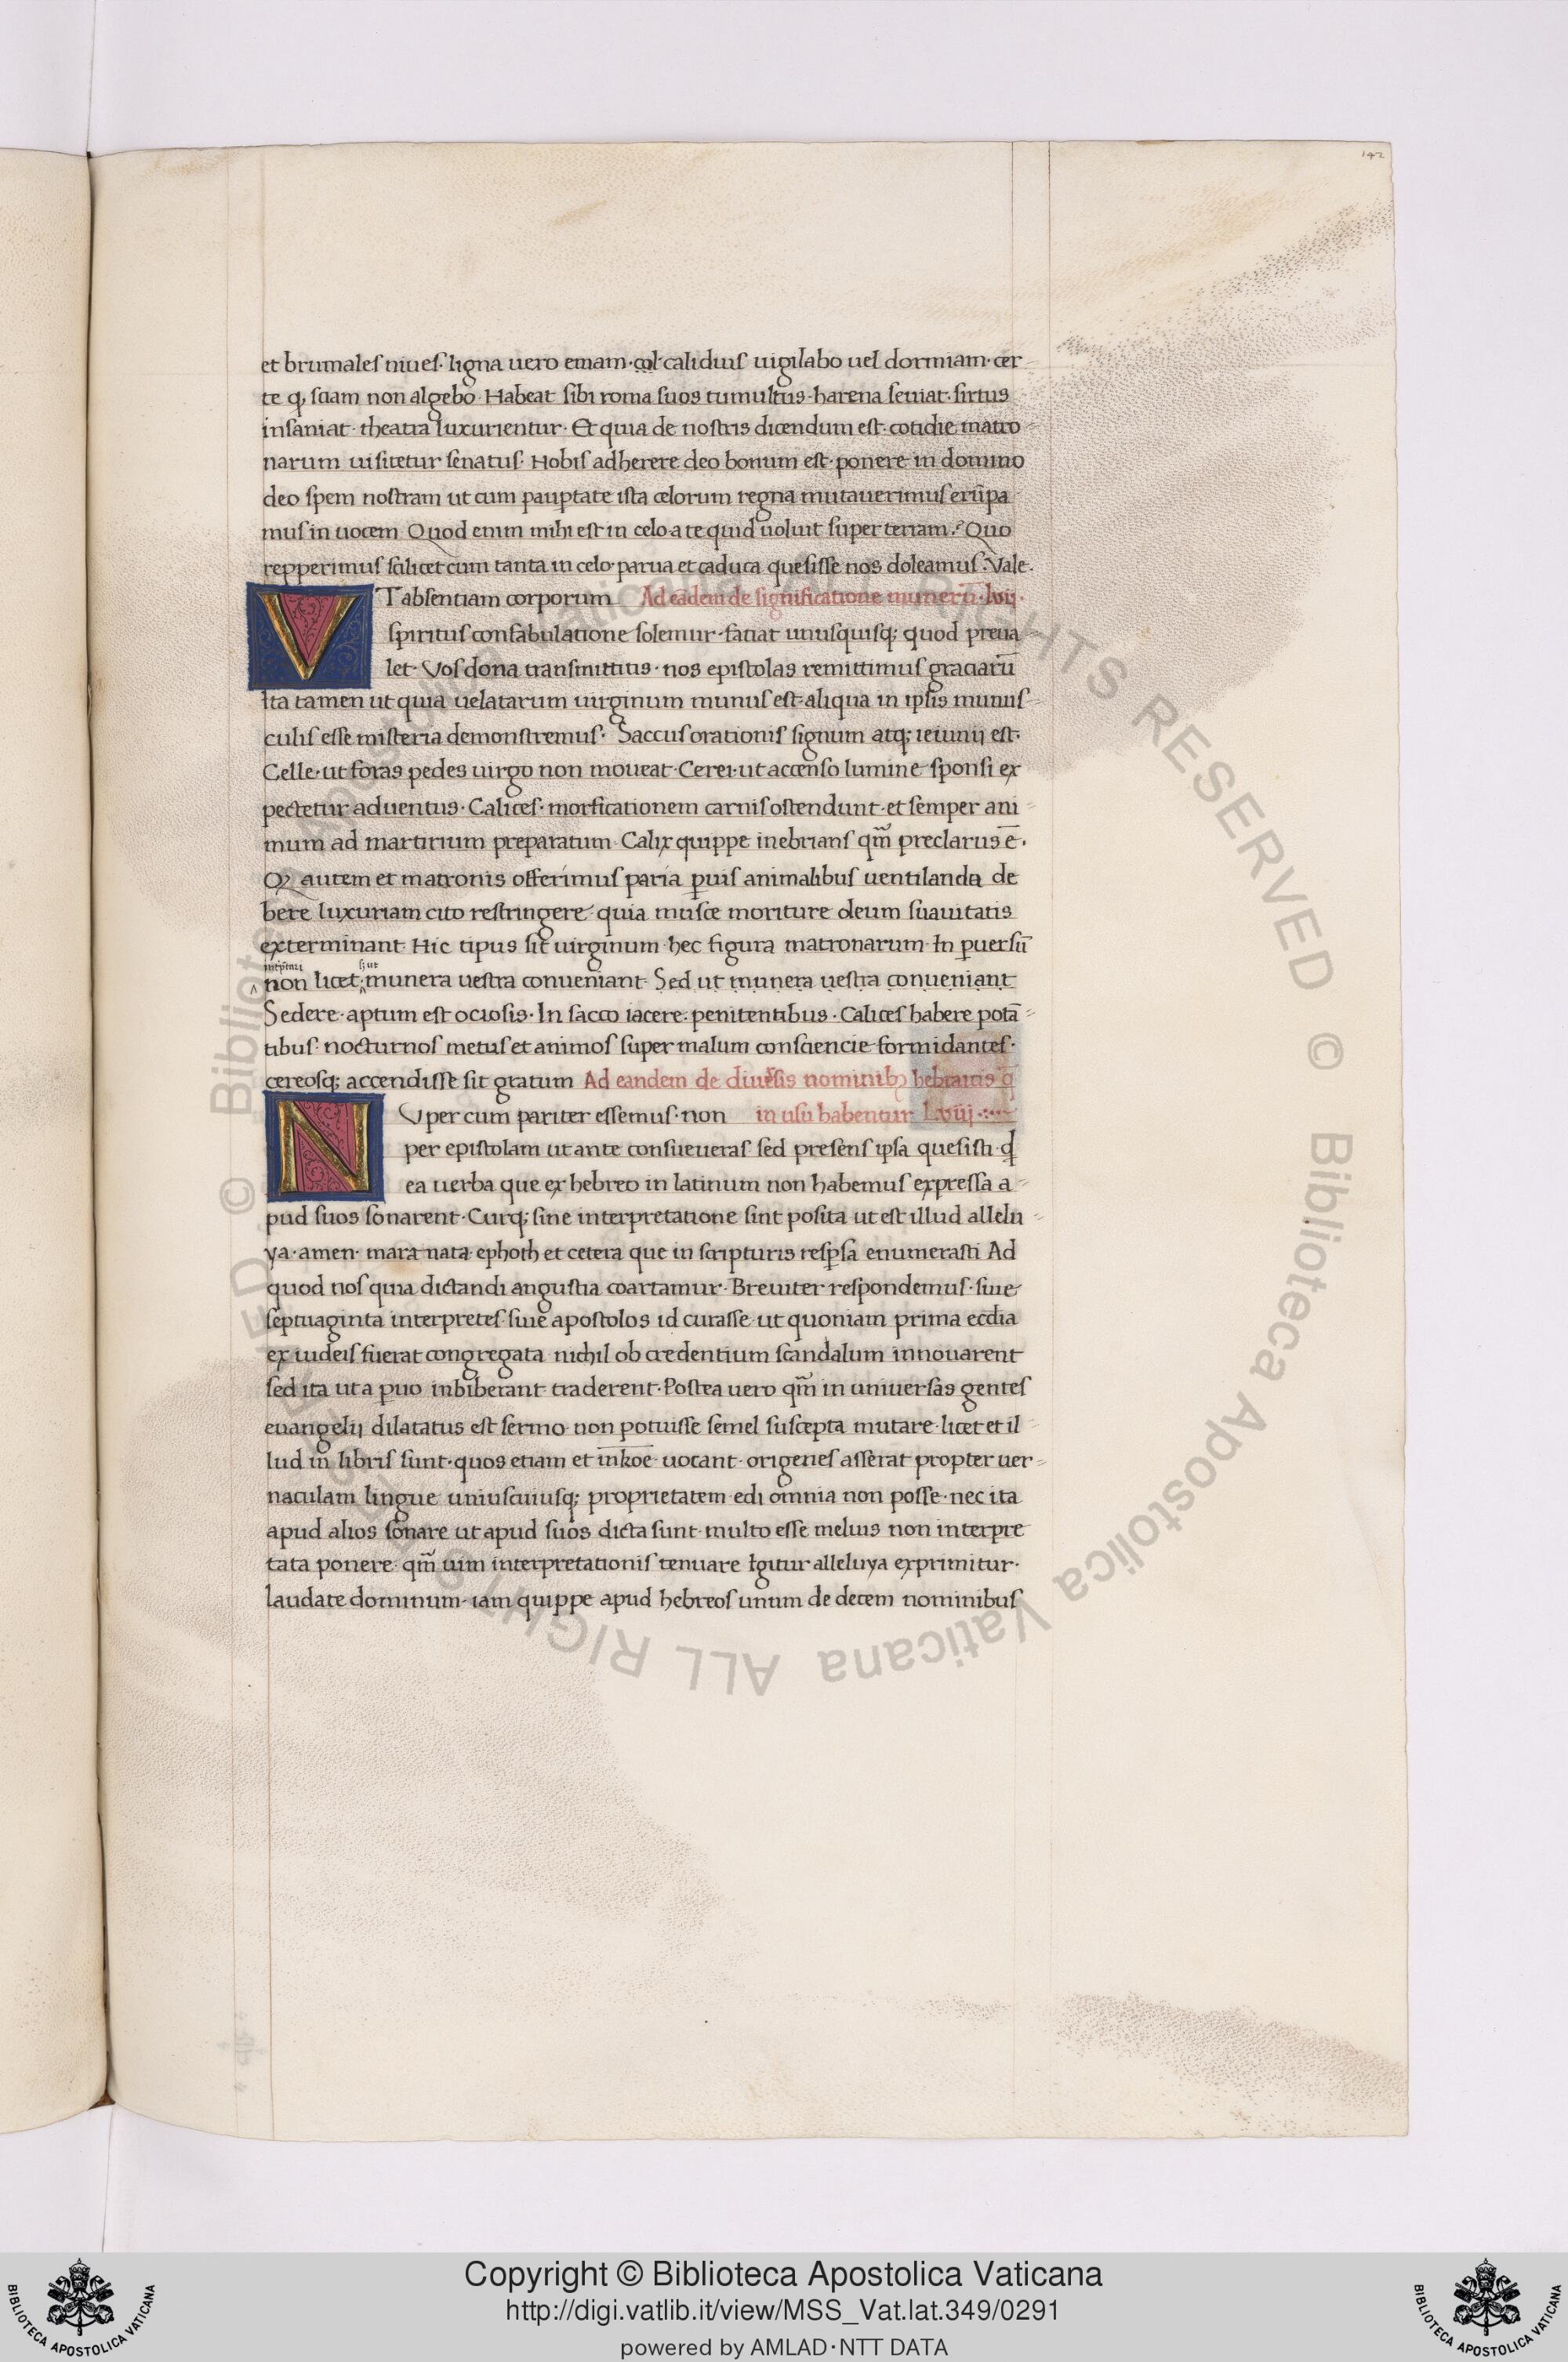 142
et brumales niues· ligna uero emam· col· calidius uigilabo uel dormiam· cer-
te q; sciam non algebo· Habeat sibi roma suos tumultus· harena seuiat· sirtus
insaniat· theatra luxurientur· Et quia de nostris dicendum est· cotidie matro-
narum uisitetur senatus· Nobis adherere deo bonum est· ponere in domino
deo spem nostram ut cum paup̱tate ista celorum regna mutauerimus erūpa
mus in uocem Quod enim mihi est in celo· a te quid uoluit super terram? Quo
repperimus scilicet cum tanta in celo· parua et caduca quesisse nos doleamus: Vale·
VT absentiam corporum Ad eadem de significatione munerū· lvij·
spiritus confabulatione solemur· fatiat unusquisq; quod preua-
let· Vos dona transmittitis· nos epistolas remittimus graciarū
Ita tamen ut quia uelatarum uirginum munus est· aliqua in ipsis munus-
culis esse misteria demonstremus· Saccus orationis signum atq; ieiunij est·
Celle· ut foras pedes uirgo non moueat· Cerei· ut accenso lumine sponsi ex
pectetur aduentus· Calices· morficationem carnis ostendunt· et semper ani-
mum ad martirium preparatum· Calix quippe inebrians qm̄ preclarus ē·
Q autem et matronis offerimus paria p̱uis animalibus uentilanda de
bere luxuriam cito restringere· quia musce moriture oleum suauitatis
exterminant Hic tipus sit uirginum· hec figura matronarum· In p̱uersū
non licet; munera uestra conueniant· Sed ut munera uestra conueniant
Sedere· aptum est ociosis· In sacco iacere· penitentibus· Calices habere potā-
tibus· nocturnos metus et animos super malum consciencie formidantes·
cereosq; accendisse sit gratum Ad eandem de diuersis nominib; hebraicis q̄
NVper cum pariter essemus· non in usu habentur Lviij
per epistolam ut ante consueueras· sed presens ipsa quesisti· q̄
ea uerba que ex hebreo in latinum non habemus expressa a-
pud suos sonarent· Curq; sine interpretatione sint posita ut est illud allelu-
ya· amen· mara nata· ephoth et cetera que in scripturis resp̱sa enumerasti Ad
quod nos quia dictandi angustia coartamur· Breuiter respondemus· siue
septuaginta interpretes· siue apostolos id curasse· ut quoniam prima eccl̄ia
ex iudeis fuerat congregata nichil ob credentium scandalum innouarent
sed ita ut a p̱uo inbiberant traderent· Postea uero qm̄ in uniuersas gentes
euangelij dilatatus est sermo· non potuisse semel suscepta mutare· licet et il-
lud in libris sunt· quos etiam et inkoe· uocant· origenes asserat propter uer-
naculam lingue uniuscuiusq; proprietatem edi omnia non posse· nec ita
apud alios sonare ut apud suos dicta sunt· multo esse melius non interpre
tata ponere· qm̄ uim interpretationis tenuare Igitur alleluya exprimitur·
laudate dominum· iam quippe apud hebreos unum de decem nominibus
© Biblioteca Apostolica Vaticana ALL RIGHTS RESERVED © Biblioteca Apostolica Vaticana ALL RIGHTS RESERVED
BIBLIOTECA APOSTOLICA VATICANA
Copyright © Biblioteca Apostolica Vaticana
http://digi.vatlib.it/view/MSS_Vat.lat.349/0291
powered by AMLAD·NTT DATA
BIBLIOTECA APOSTOLICA VATICANA